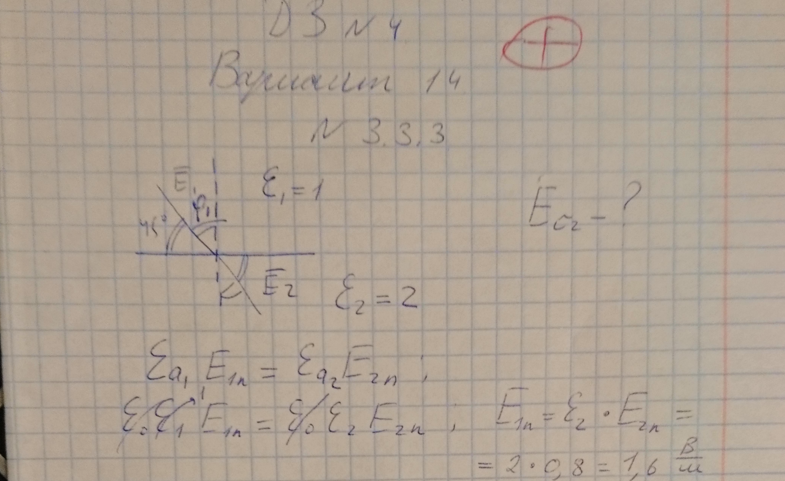 ДЗ N 4
Вариант 14
N 3.3.3
E₁ φ₁ ε₁ = 1
45°
E₂ ε₂ = 2
εa₁ E₁ₙ = εa₂ E₂ₙ ;
ε₀ ε₁ E₁ₙ = ε₀ ε₂ E₂ₙ ; E₁ₙ = ε₂ · E₂ₙ =
= 2 · 0,8 = 1,6 В/м